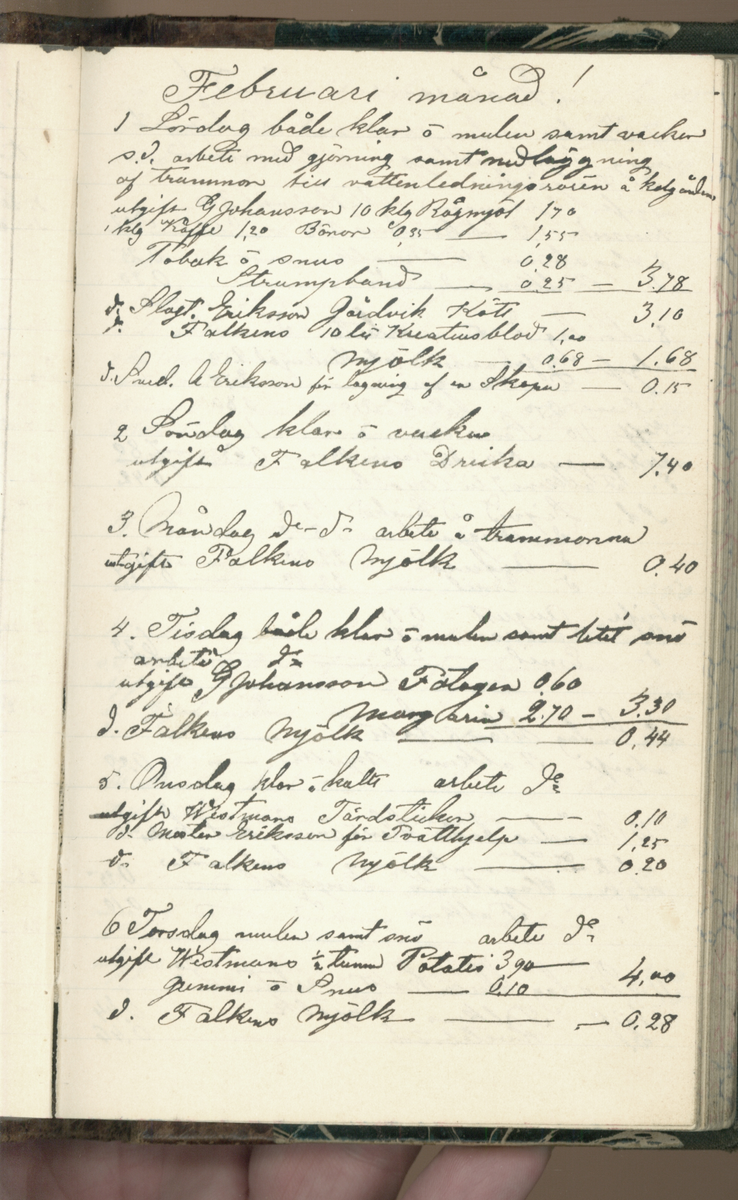 Februari månad!
1 Lördag både klar ō mulen samt vacker
s.d. arbete med gjörning samt nedläggning
af trummon till vattenledningsrören å
utgift G Johansson 10 klg Rågmjöl 1,70
1 klg Kaffe 1,20 Bönor 0,35 — 1,55
Tobak ō snus — 0.28
Strumpband — 0.25 — 3.78
d. Slagt. Eriksson Gärdvik Kött — 3,10
d. Falkens 10 lit Kreatursblod 1,00
Mjölk — 0.68 — 1.68
d. Smed. A Eriksson för lagning af en Skopa — 0.15
2 Söndag klar ō vacker
utgift Falkens Dricka — 7.40
3. Måndag d:o d:o arbete å trummorna
utgift Falkens Mjölk — 0.40
4. Tisdag både klar ō mulen samt litet snö
arbete d:o
utgift G Johansson Fotogen 0.60
Margarin 2.70 — 3.30
d. Falkens Mjölk — 0,44
5. Onsdag klar ō kallt arbete d:o
utgift Westmans Tändstickor — 0.10
d. Moster Eriksson för Tvätthjelp — 1,25
d. Falkens Mjölk — 0.20
6 Torsdag mulen samt snö arbete d:o
utgift Westmans ½ tunna Potatis 3,90
gummi ō Snus — 0,10 4,00
d. Falkens Mjölk — 0.28